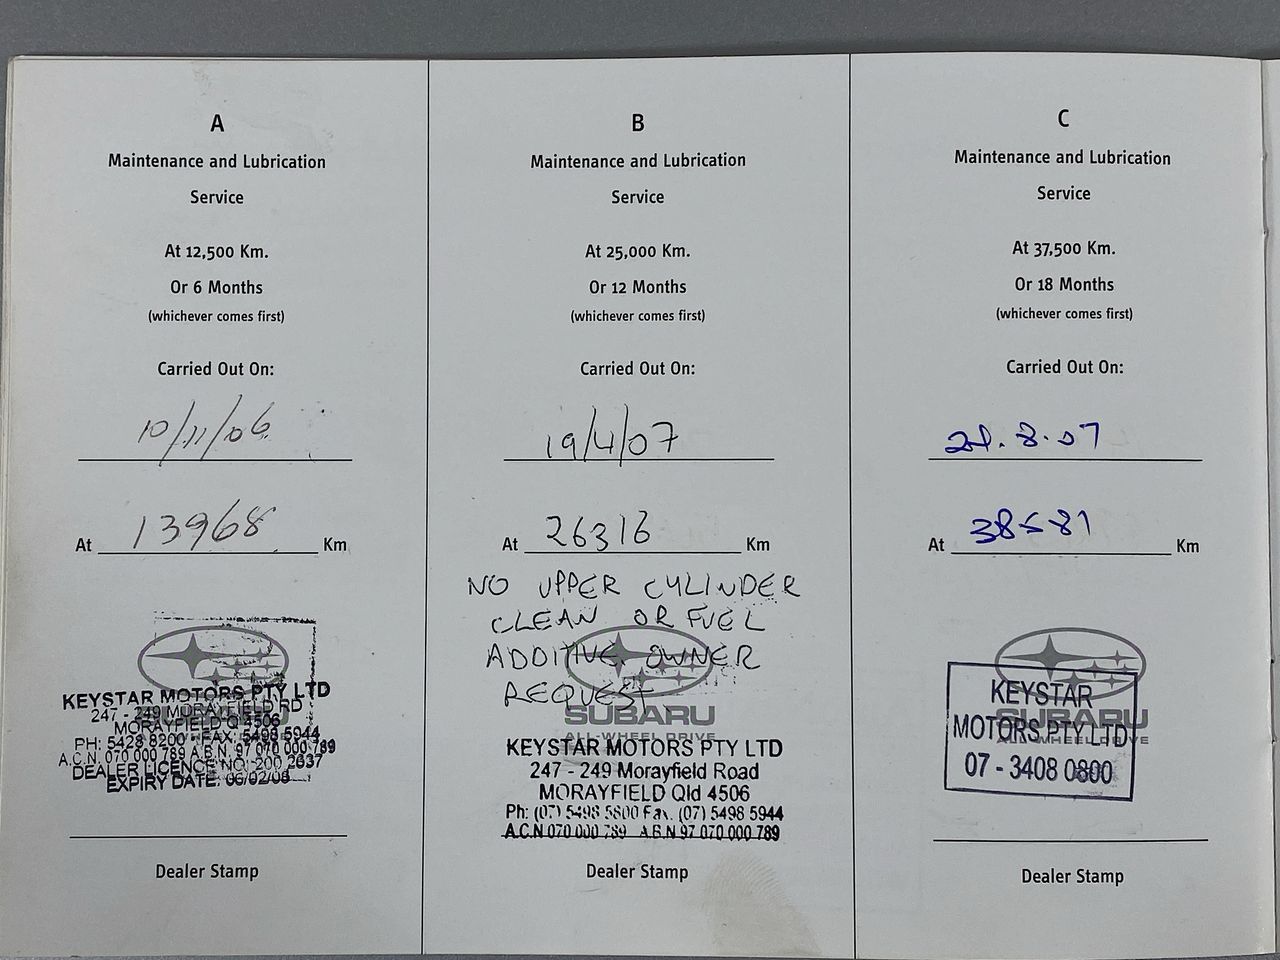 A
Maintenance and Lubrication
Service
At 12,500 Km.
Or 6 Months
(whichever comes first)
Carried Out On:
10/11/06
At 13968 Km
KEYSTAR MOTORS PTY LTD
247 - 249 MORAYFIELD RD
MORAYFIELD Q 4506
PH: 5428 8200 FAX: 5498 5944
A.C.N. 070 000 789 A.B.N. 97 070 000 789
DEALER LICENCE NO: 200 2637
EXPIRY DATE: 06/02/08
Dealer Stamp
B
Maintenance and Lubrication
Service
At 25,000 Km.
Or 12 Months
(whichever comes first)
Carried Out On:
19/4/07
At 26316 Km
NO UPPER CYLINDER
CLEAN OR FUEL
ADDITIVE OWNER
REQUEST
SUBARU
ALL-WHEEL DRIVE
KEYSTAR MOTORS PTY LTD
247 - 249 Morayfield Road
MORAYFIELD Qld 4506
Ph: (07) 5498 5800 Fax. (07) 5498 5944
A.C.N 070 000 789 A.B.N 97 070 000 789
Dealer Stamp
C
Maintenance and Lubrication
Service
At 37,500 Km.
Or 18 Months
(whichever comes first)
Carried Out On:
8.07
At 38581 Km
KEYSTAR
SUBARU
MOTORS PTY LTD
ALL-WHEEL DRIVE
07 - 3408 0800
Dealer Stamp